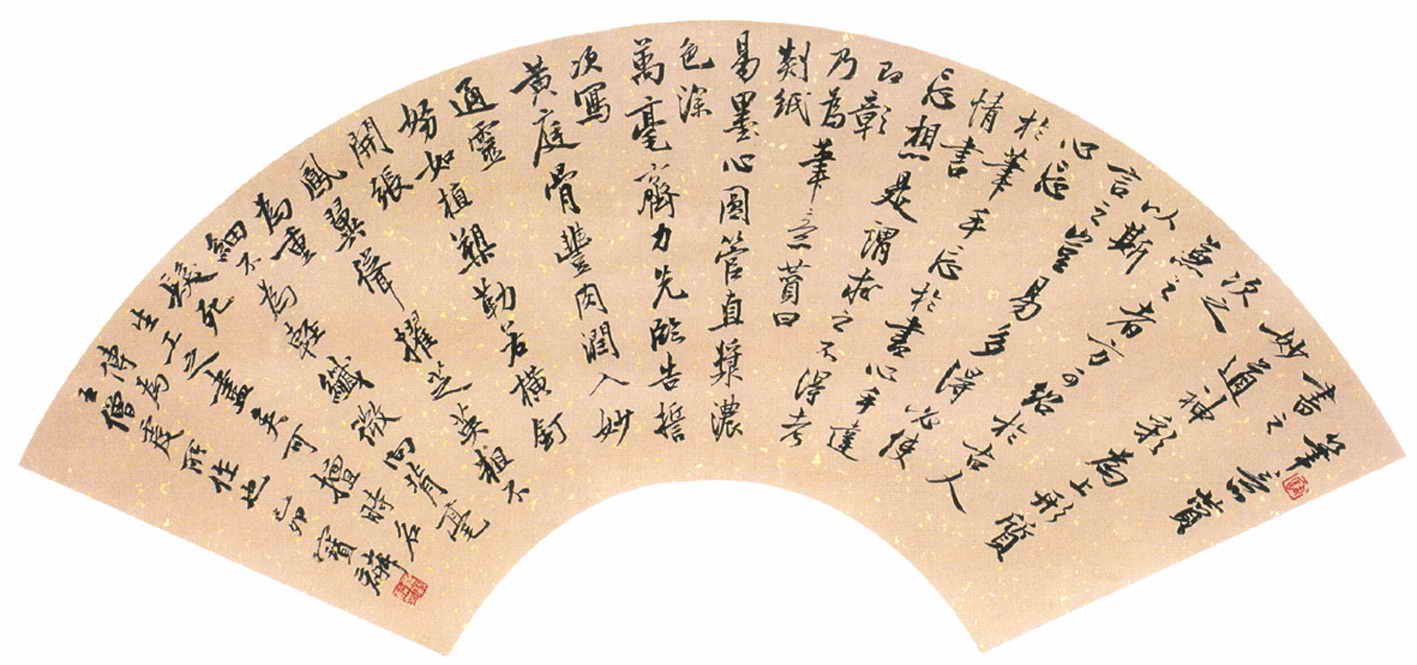 筆意贊
書之
妙道神彩為上形質
次之
兼之者方可紹於古人
以斯
言之豈易多得必使
心忘
於筆手忘於書心手達
情書
忘想是謂求之不得考
即彰
乃為筆意贊曰
剡紙
易墨心圓管直漿濃
色深
萬毫齊力先臨告誓
次寫
黃庭骨豐肉潤入妙
通靈
努如植槊勒若橫釘
開張
鳳翼聳擢芝英粗不
為重
細不為輕纖微向背毫
髮死
生工之盡矣可擅時名
傳為
王僧虔所作也己卯寶麟